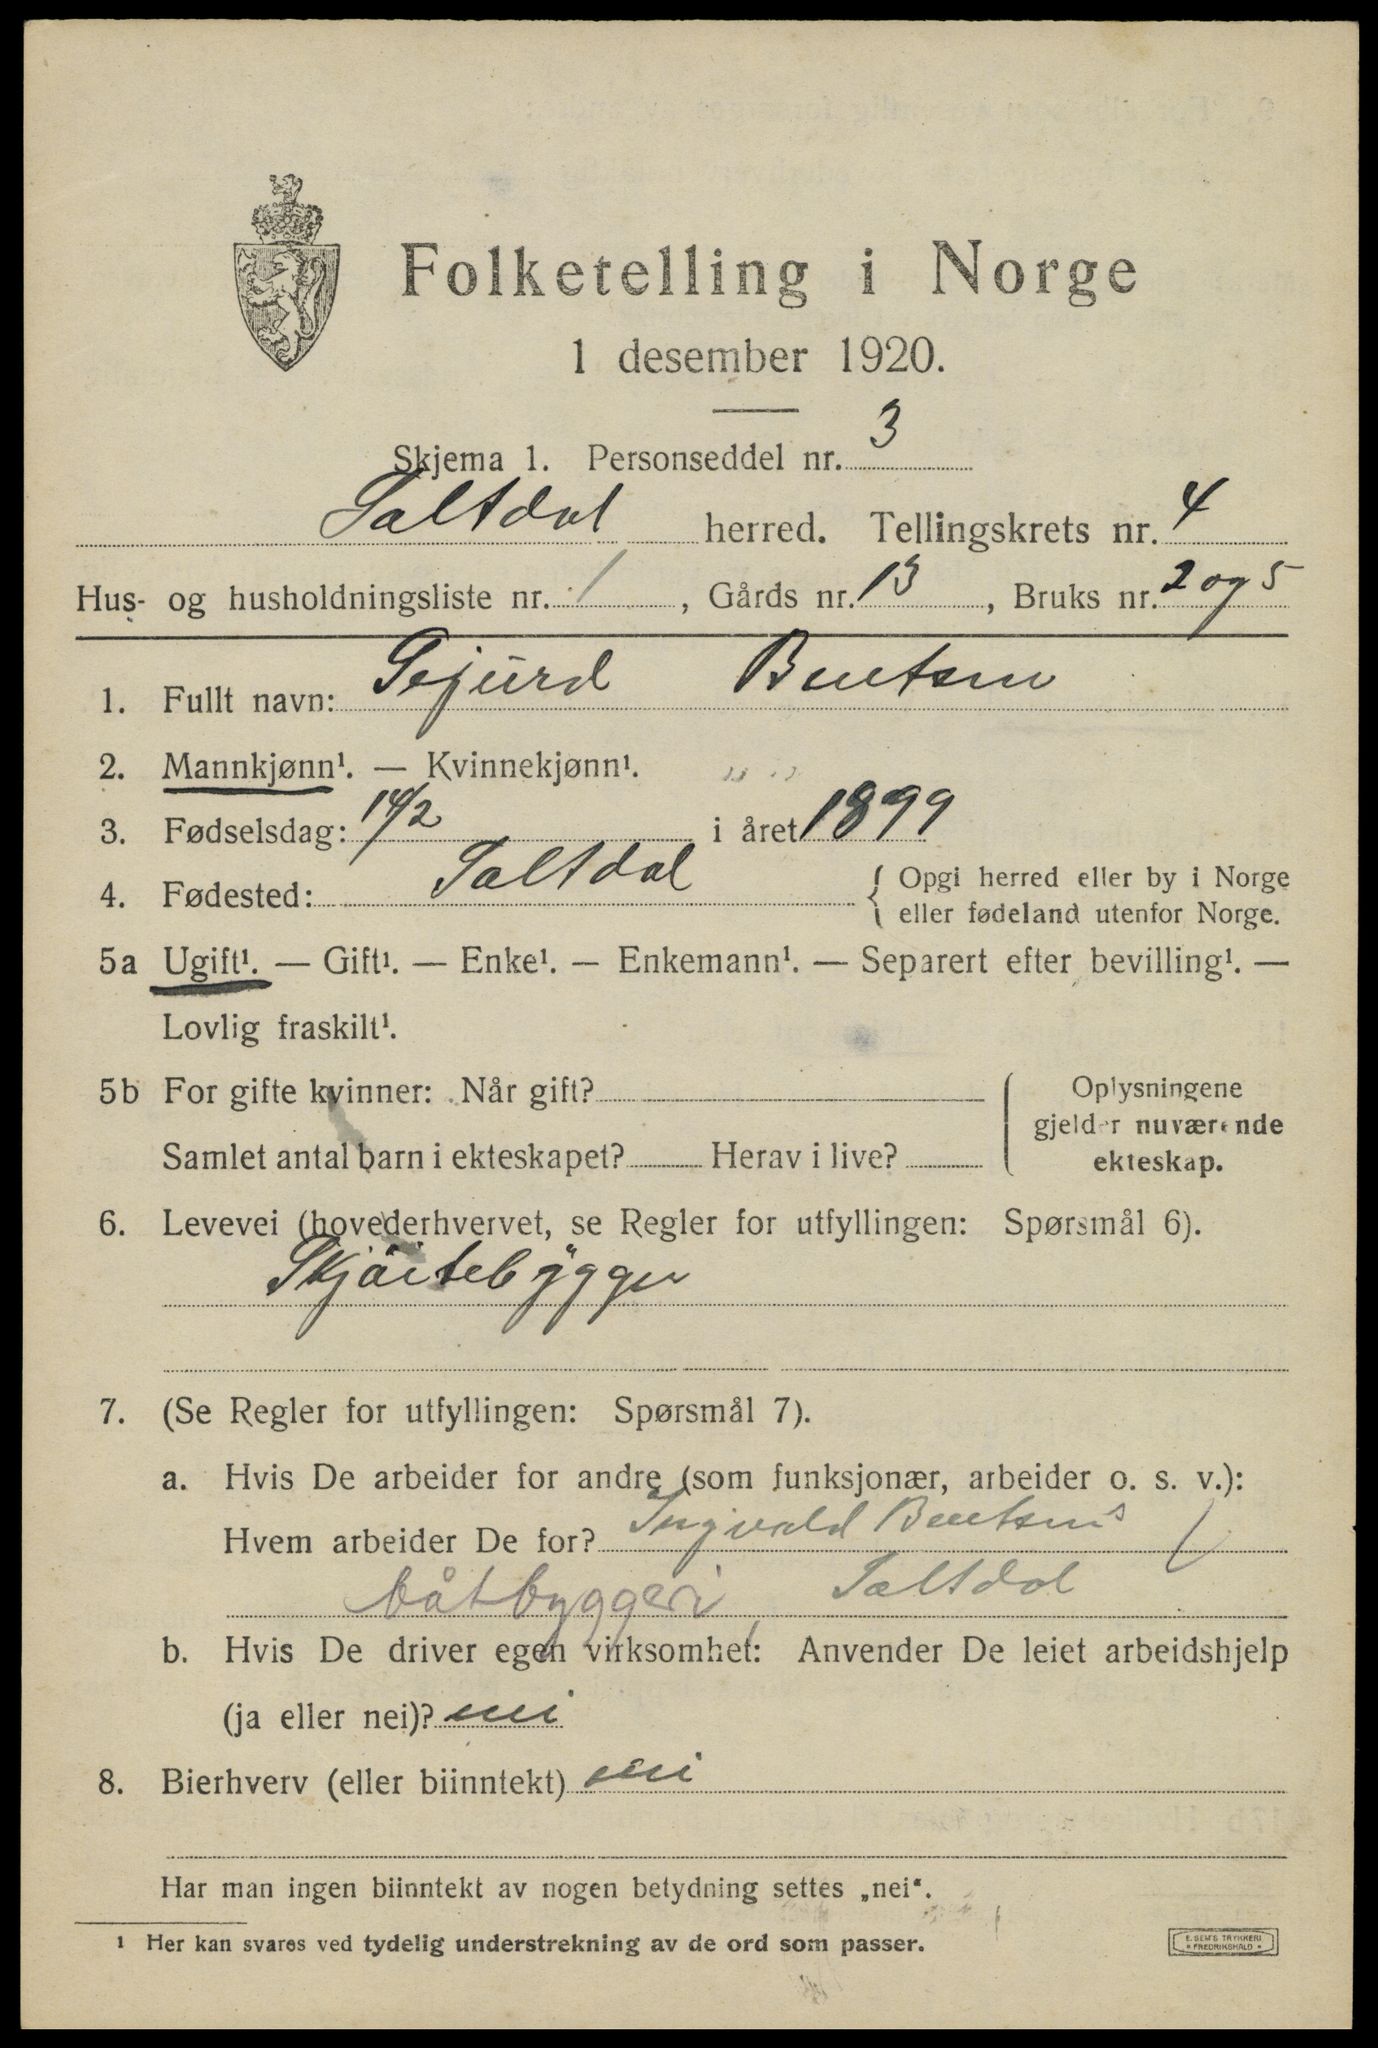 Folketelling i Norge
1 desember 1920.
Skjema 1. Personseddel nr. 3
Saltdal herred. Tellingskrets nr. 4
Hus- og husholdningsliste nr. 1, Gårds nr. 13, Bruks nr. 2 og 5
1. Fullt navn: Sejurd Bentsen
2. Mannkjønn¹. — Kvinnekjønn¹.
3. Fødselsdag: 14/2 i året 1899
4. Fødested: Saltdal { Opgi herred eller by i Norge
eller fødeland utenfor Norge.
5a Ugift¹. — Gift¹. — Enke¹. — Enkemann¹. — Separert efter bevilling¹. —
Lovlig fraskilt¹.
5b For gifte kvinner: Når gift? Oplysningene
gjelder nuværende
Samlet antal barn i ekteskapet? Herav i live? ekteskap.
6. Levevei (hovederhvervet, se Regler for utfyllingen: Spørsmål 6).
Skjöitebÿgger
7. (Se Regler for utfyllingen: Spørsmål 7).
a. Hvis De arbeider for andre (som funksjonær, arbeider o. s. v.):
Hvem arbeider De for? Ingvald Bentsens
båtbyggeri, Saltdal
b. Hvis De driver egen virksomhet: Anvender De leiet arbeidshjelp
(ja eller nei)? nei
8. Bierhverv (eller biinntekt) nei
Har man ingen biinntekt av nogen betydning settes „nei“.
¹ Her kan svares ved tydelig understrekning av de ord som passer.
E. SEM'S TRYKKERI
* FREDRIKSHALD *